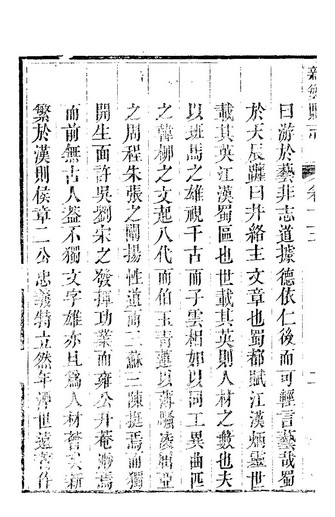 新繁縣志 卷十三 二
曰游於藝非志道據德依仁後而可輕言藝哉蜀
於天辰躔曰井絡主文章也蜀都賦江漢炳靈世
載其英江漢蜀區也世載其英則人材之藪也夫
以班馬之雄視千古而子雲相如以詞工異曲匹
之韓柳之文起八代而伯玉青蓮以薄騷凌亞
之周程朱張之闡揚性道而二蘇三陳挺焉而獨
開生面許吳劉宋之發揮功業而雍公升菴焉
而前無古人蓋不獨文字雄亦且爲人材矣新
繁於漢則侯章二公忠義特立然年湮世遠著作